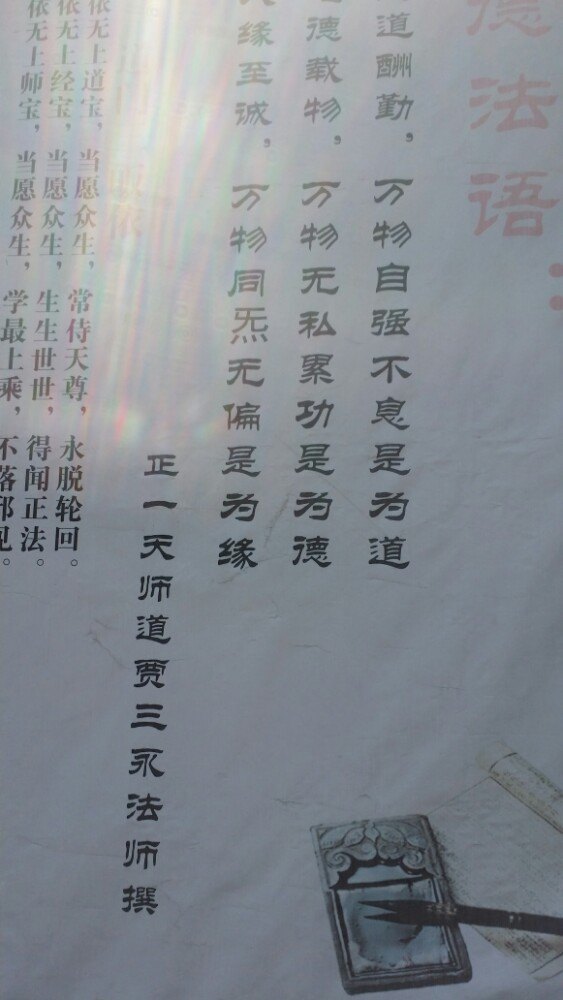 德法语：
道酬勤，万物自强不息是为道
德载物，万物无私累功是为德
缘至诚，万物同炁无偏是为缘
正一天师道贾三永法师撰
皈依
依无上道宝，当愿众生，常侍天尊，永脱轮回。
依无上经宝，当愿众生，生生世世，得闻正法。
依无上师宝，当愿众生，学最上乘，不落邪见。